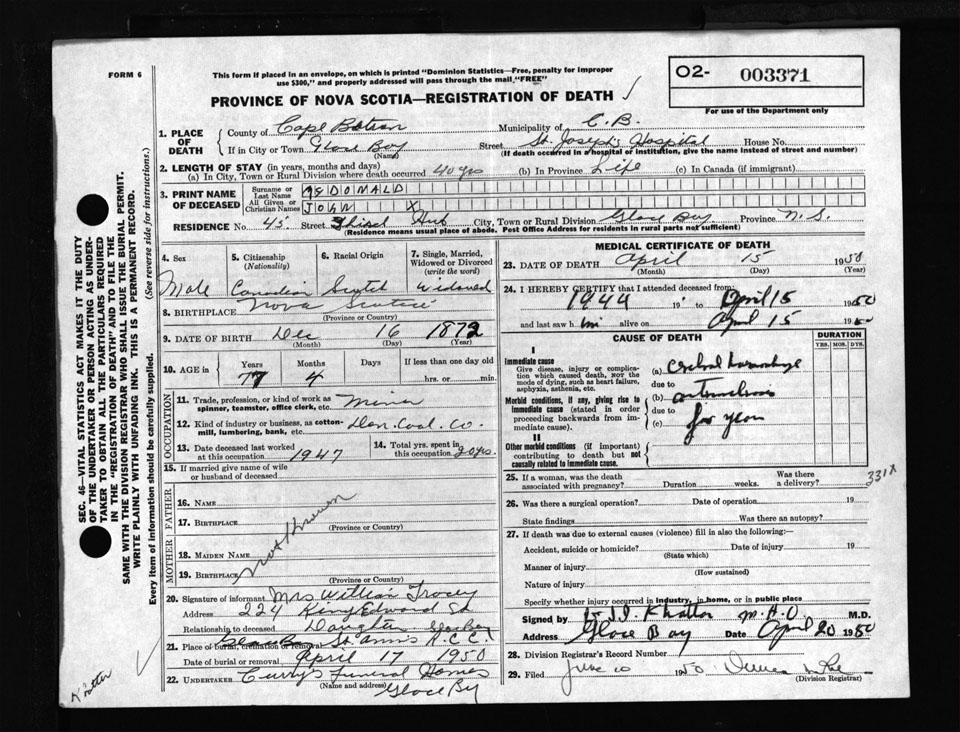 FORM 6
This form if placed in an envelope, on which is printed "Dominion Statistics—Free, penalty for improper
use $300," and properly addressed will pass through the mail "FREE"
O2- 003371
For use of the Department only
PROVINCE OF NOVA SCOTIA—REGISTRATION OF DEATH
1. PLACE OF DEATH County of Cape Breton Municipality of C. B.
If in City or Town Glace Bay (Name) Street St. Joseph's Hospital House No.
(If death occurred in a hospital or institution, give the name instead of street and number)
2. LENGTH OF STAY (in years, months and days)
(a) In City, Town or Rural Division where death occurred 40 yrs (b) In Province Life (c) In Canada (if immigrant)
3. PRINT NAME OF DECEASED
Surname or Last Name McDONALD
All Given or Christian Names JOHN X
RESIDENCE No. 45 Street Third Hub City, Town or Rural Division Glace Bay Province N. S.
(Residence means usual place of abode. Post Office Address for residents in rural parts not sufficient)
4. Sex
Male
5. Citizenship (Nationality)
Canadian
6. Racial Origin
Scotch
7. Single, Married, Widowed or Divorced (write the word)
Widowed
8. BIRTHPLACE Nova Scotia
(Province or Country)
9. DATE OF BIRTH Dec 16 1872
(Month) (Day) (Year)
10. AGE in Years Months Days If less than one day old
77 4 hrs. or min.
OCCUPATION
11. Trade, profession, or kind of work as spinner, teamster, office clerk, etc. Miner
12. Kind of industry or business, as cotton-mill, lumbering, bank, etc. Dom. Coal. Co.
13. Date deceased last worked at this occupation 1947
14. Total yrs. spent in this occupation 20 yrs.
15. If married give name of wife or husband of deceased
FATHER
16. Name
17. Birthplace
(Province or Country)
not known
MOTHER
18. Maiden Name
19. Birthplace
(Province or Country)
20. Signature of informant Mrs William
Address 224 King Edward St
Relationship to deceased Daughter Glace Bay
21. Place of burial, cremation or removal St. Anns R.C.C.
Date of burial or removal April 17 1950
22. UNDERTAKER Curry's Funeral Homes
(Name and address) Glace Bay
MEDICAL CERTIFICATE OF DEATH
23. DATE OF DEATH April 15 1950
(Month) (Day) (Year)
24. I HEREBY CERTIFY that I attended deceased from:
1944 19 to April 15 1950
and last saw him alive on April 15 1950
CAUSE OF DEATH
DURATION
YRS. MOS. DYS.
I
Immediate cause
Give disease, injury or complication which caused death, NOT the mode of dying, such as heart failure, asphyxia, asthenia, etc.
(a) cerebral haemorrhage
due to
Morbid conditions, if any, giving rise to immediate cause (stated in order proceeding backwards from immediate cause).
(b) arteriosclerosis
due to
(c) for years
II
Other morbid conditions (if important) contributing to death but not causally related to immediate cause.
331X
25. If a woman, was the death associated with pregnancy? Duration weeks. Was there a delivery?
26. Was there a surgical operation? Date of operation 19
State findings Was there an autopsy?
27. If death was due to external causes (violence) fill in also the following:
Accident, suicide or homicide? Date of injury 19
(State which)
Manner of injury
(How sustained)
Nature of injury
Specify whether injury occurred in industry, in home, or in public place
Signed by Khattar M.H.O. M.D.
Address Glace Bay Date April 20 1950
28. Division Registrar's Record Number
29. Filed June 10 1950
(Division Registrar)
SEC. 46—VITAL STATISTICS ACT MAKES IT THE DUTY
OF THE UNDERTAKER OR PERSON ACTING AS UNDERTAKER
TO OBTAIN ALL THE PARTICULARS REQUIRED
IN THE "REGISTRATION OF DEATH" AND TO FILE THE
SAME WITH THE DIVISION REGISTRAR WHO SHALL ISSUE THE BURIAL PERMIT.
WRITE PLAINLY WITH UNFADING INK. THIS IS A PERMANENT RECORD.
Every item of information should be carefully supplied. (See reverse side for instructions.)